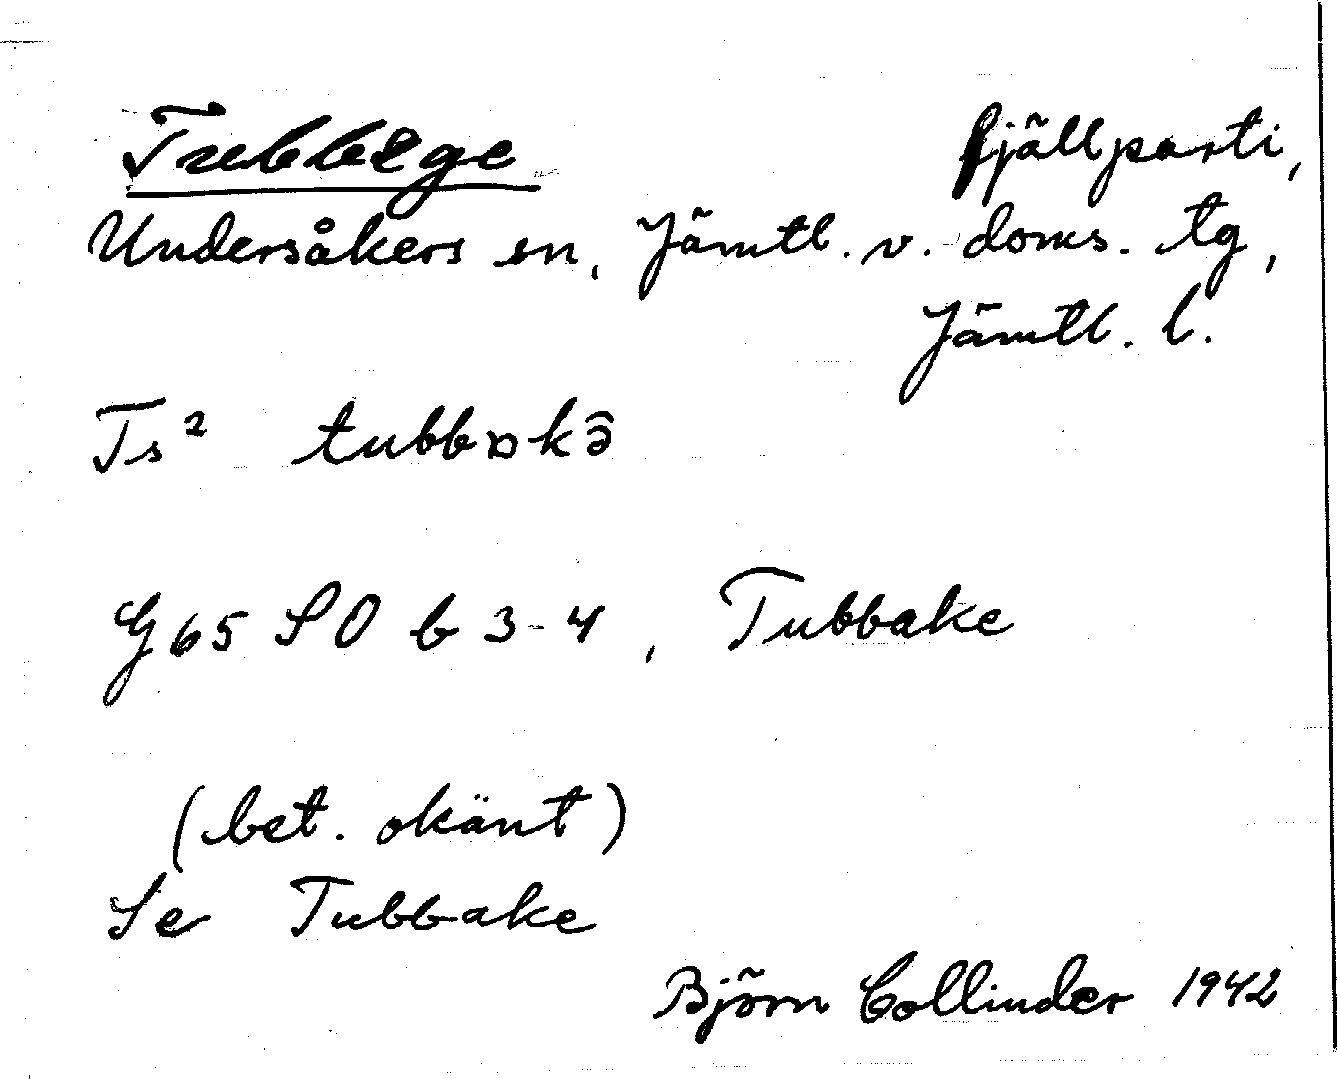 Tubbege fjällparti,
Undersåkers sn, Jämtl. v. doms. tg,
Jämtl. l.
Ts² tubbɒkə̑
G 65 SO b 3-4, Tubbake
(bet. okänt)
Se Tubbake
Björn Collinder 1942